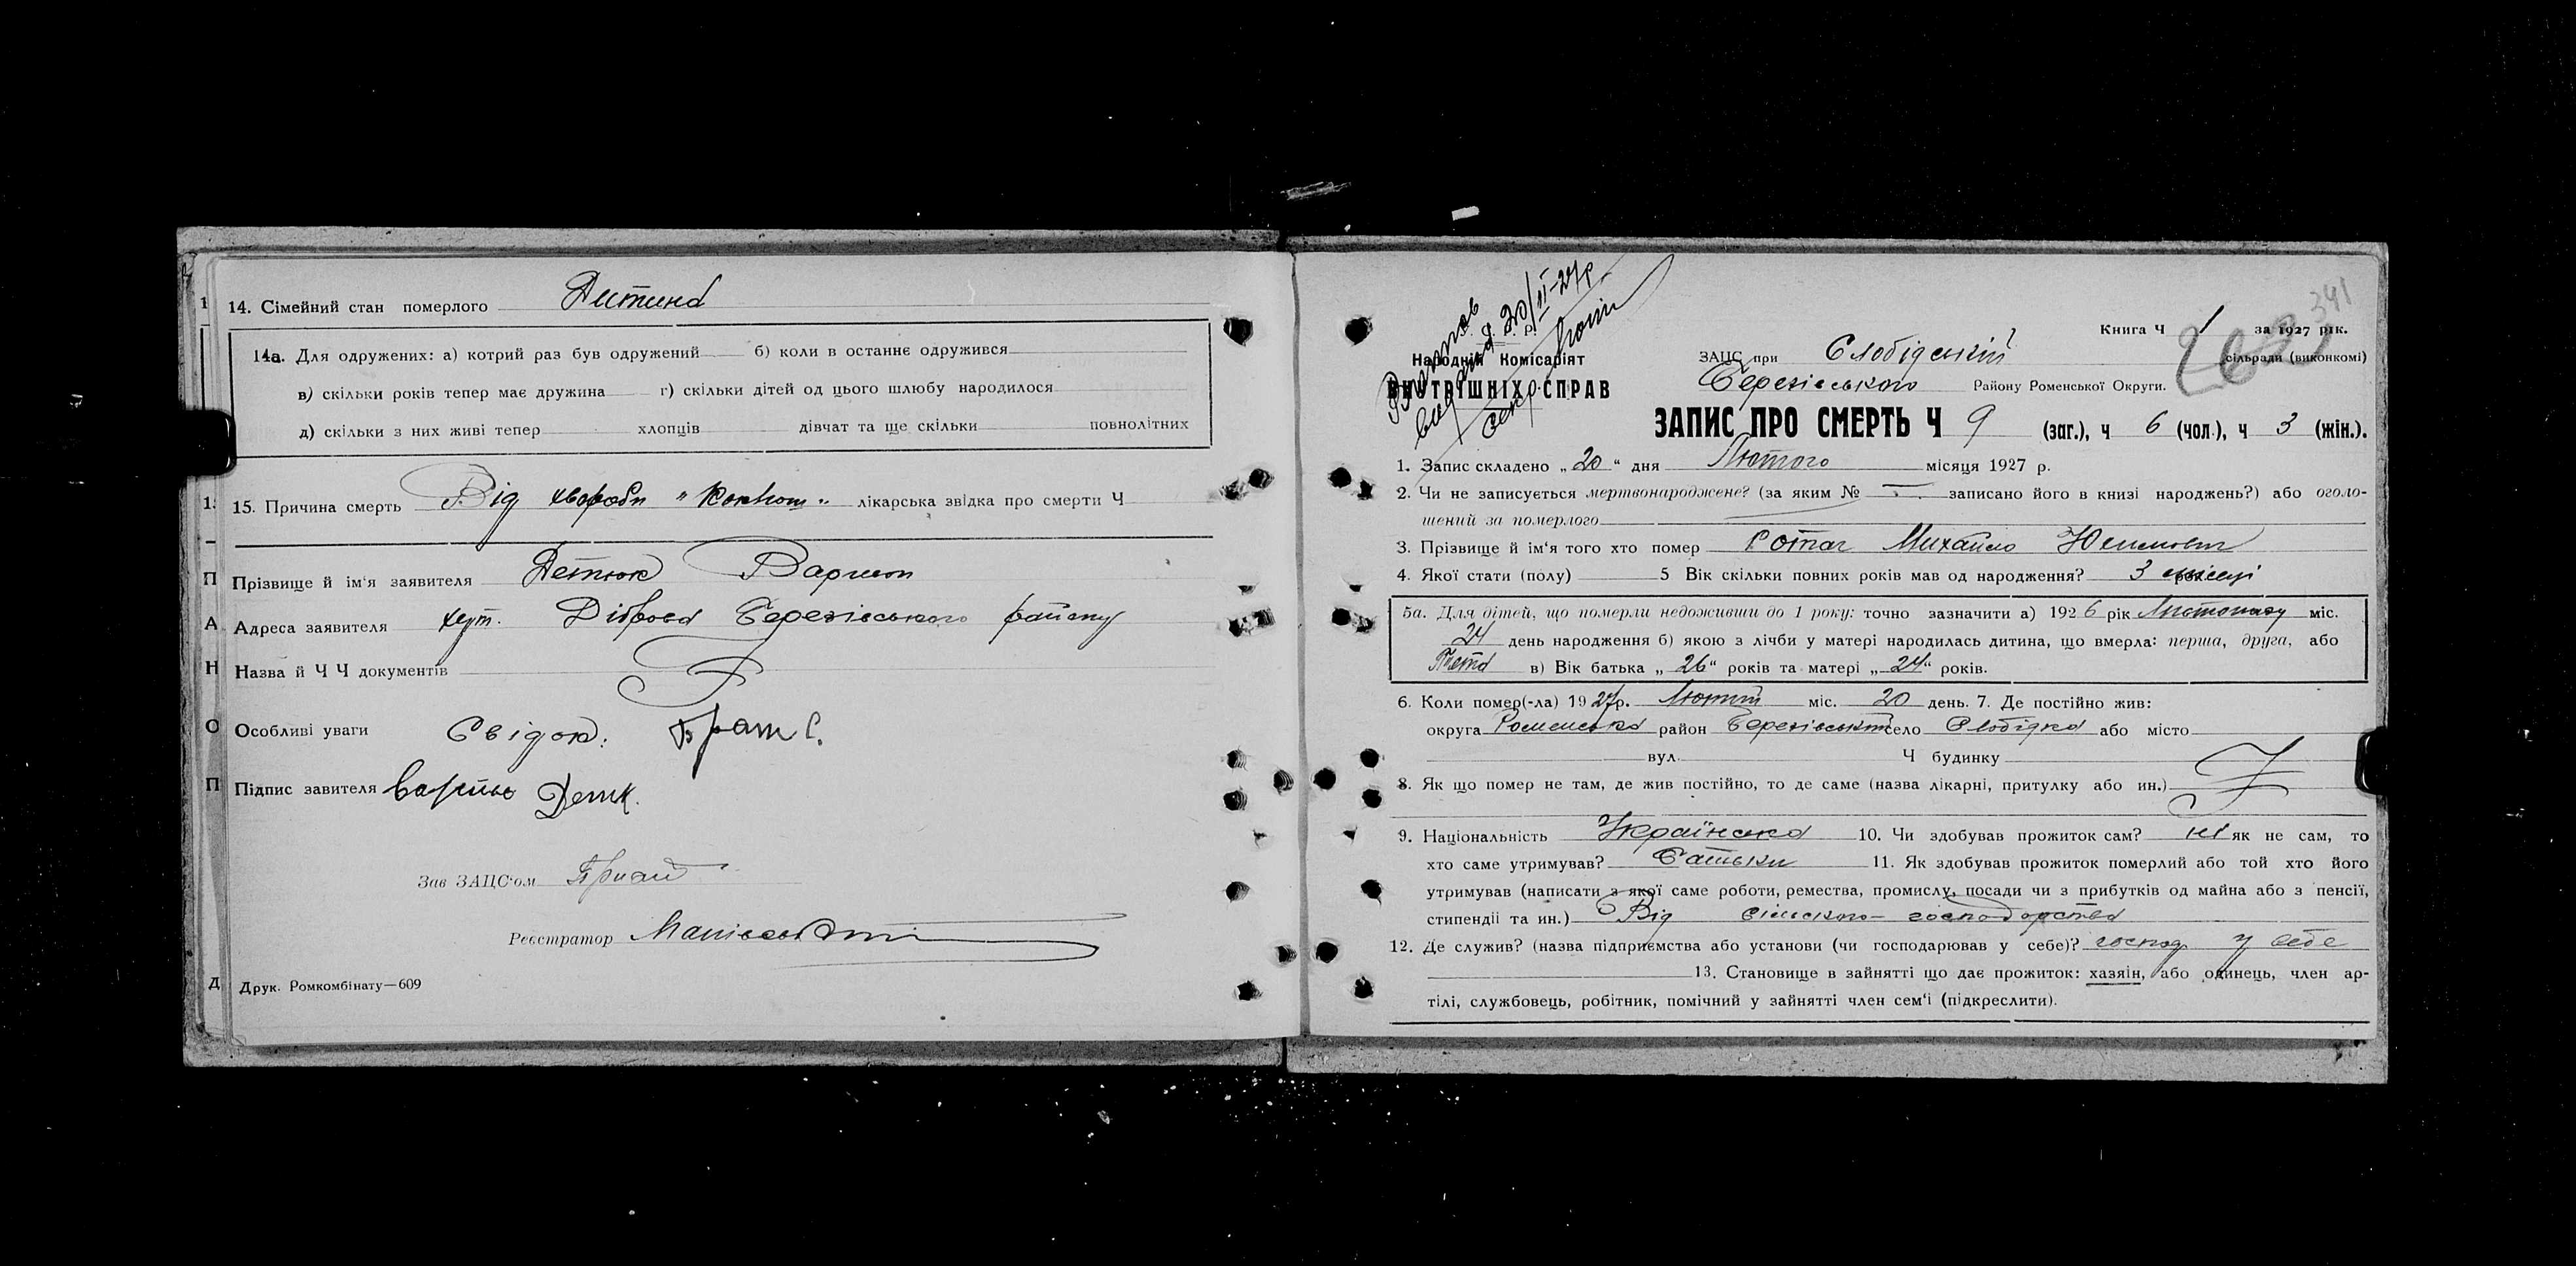 14. Сімейний стан померлого Дитина
14а. Для одружених: а) котрий раз був одружений б) коли в останнє одружився
в) скільки років тепер має дружина г) скільки дітей од цього шлюбу народилося
д) скільки з них живі тепер хлопців дівчат та ще скільки повнолітних
15. Причина смерть Від хвороби " Коклюш " лікарська звідка про смерти Ч
Прізвище й ім'я заявителя
Адреса заявителя хут. Діброва Березівського району
Назва й Ч Ч документів
Особливі уваги Свідок:
Підпис завителя
Зав ЗАЦС'ом
Реєстратор
Друк. Ромкомбінату—609
341
Книга Ч 1 за 1927 рік.
Народній Комісаріят
ВНУТРІШНІХ СПРАВ
20/II-27р
ЗАЦС при Слобідській сільради (виконкомі)
Березівського Району Роменської Округи.
ЗАПИС ПРО СМЕРТЬ Ч 9 (заг.), ч 6 (чол.), ч 3 (жін.).
1. Запис складено „20" дня Лютого місяця 1927 р.
2. Чи не записується мертвонароджене? (за яким № записано його в книзі народжень?) або оголо-
шений за померлого
3. Прізвище й ім'я того хто помер Ротач Михайло
4. Якої стати (полу) 5 Вік скільки повних років мав од народження? 3 місяці
5а. Для дітей, що померли недоживши до 1 року: точно зазначити а) 1926 рік Листопаду міс.
24 день народження б) якою з лічби у матері народилась дитина, що вмерла: перша, друга, або
Третя в) Вік батька „ 26" років та матері „ 24" років.
6. Коли помер(-ла) 1927р. Лютий міс. 20 день. 7. Де постійно жив:
округа Роменська район Березівський село Слобідка або місто
вул. Ч будинку
8. Як що помер не там, де жив постійно, то де саме (назва лікарні, притулку або ин.)
9. Національність Українська 10. Чи здобував прожиток сам? ні як не сам, то
хто саме утримував? Батьки 11. Як здобував прожиток померлий або той хто його
утримував (написати з якої саме роботи, ремества, промислу, посади чи з прибутків од майна або з пенсії,
стипендії та ин.) Від сільського господарства
12. Де служив? (назва підприємства або установи (чи господарював у себе)? господ у себе
13. Становище в зайнятті що дає прожиток: хазяін, або одинець, член ар-
тілі, службовець, робітник, помічний у зайнятті член сем'і (підкреслити).